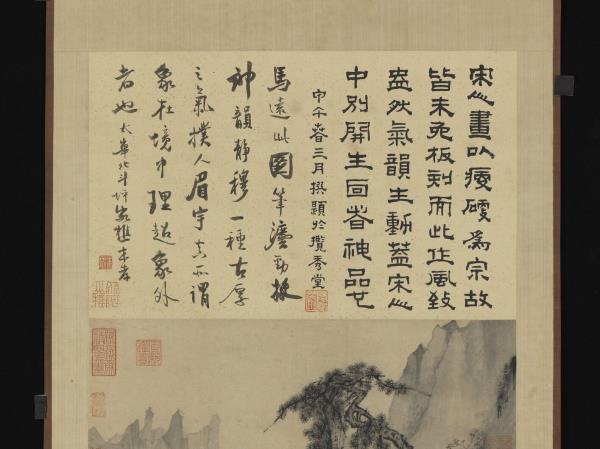 宋人畫以瘦硬為宗故
皆未免板刻而此作風致
盎然氣韻生動蓋宋人
中別開生面者神品也
甲午春三月撰題於攬秀堂
馬遠此圖筆灋勁挺
神韻靜穆一種古厚
之氣撲人眉宇真所謂
象在境中理超象外
者也 太華北斗坪